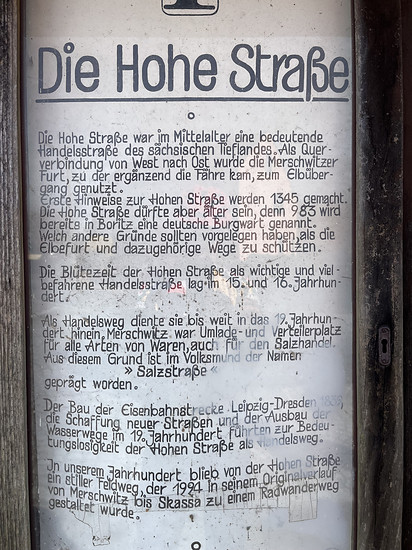 Die Hohe Straße
Die Hohe Straße war im Mittelalter eine bedeutende
Handelsstraße des sächsischen Tieflandes. Als Quer-
verbindung von West nach Ost wurde die Merschwitzer
Furt, zu der ergänzend die Fähre kam, zum Elbüber-
gang genutzt.
Erste Hinweise zur Hohen Straße werden 1345 gemacht.
Die Hohe Straße dürfte aber älter sein, denn 983 wird
bereits in Boritz eine deutsche Burgwart genannt.
Welch andere Gründe sollten vorgelegen haben, als die
Elbefurt und dazugehörige Wege zu schützen.
Die Blütezeit der Hohen Straße als wichtige und viel-
befahrene Handelsstraße lag im 15. und 16. Jahrhun-
dert.
Als Handelsweg diente sie bis weit in das 19. Jahrhun-
dert hinein, Merschwitz war Umlade- und Verteilerplatz
für alle Arten von Waren, auch für den Salzhandel.
Aus diesem Grund ist im Volksmund der Namen
» Salzstraße «
geprägt worden.
Der Bau der Eisenbahnstrecke Leipzig-Dresden
die Schaffung neuer Straßen und der Ausbau der
Wasserwege im 19. Jahrhundert führten zur Bedeu-
tungslosigkeit der Hohen Straße als Handelsweg.
In unserem Jahrhundert blieb von der Hohen Straße
ein stiller Feldweg, der 1994 in seinem Originalverlauf
von Merschwitz bis Skassa zu einem Radwanderweg
gestaltet wurde.